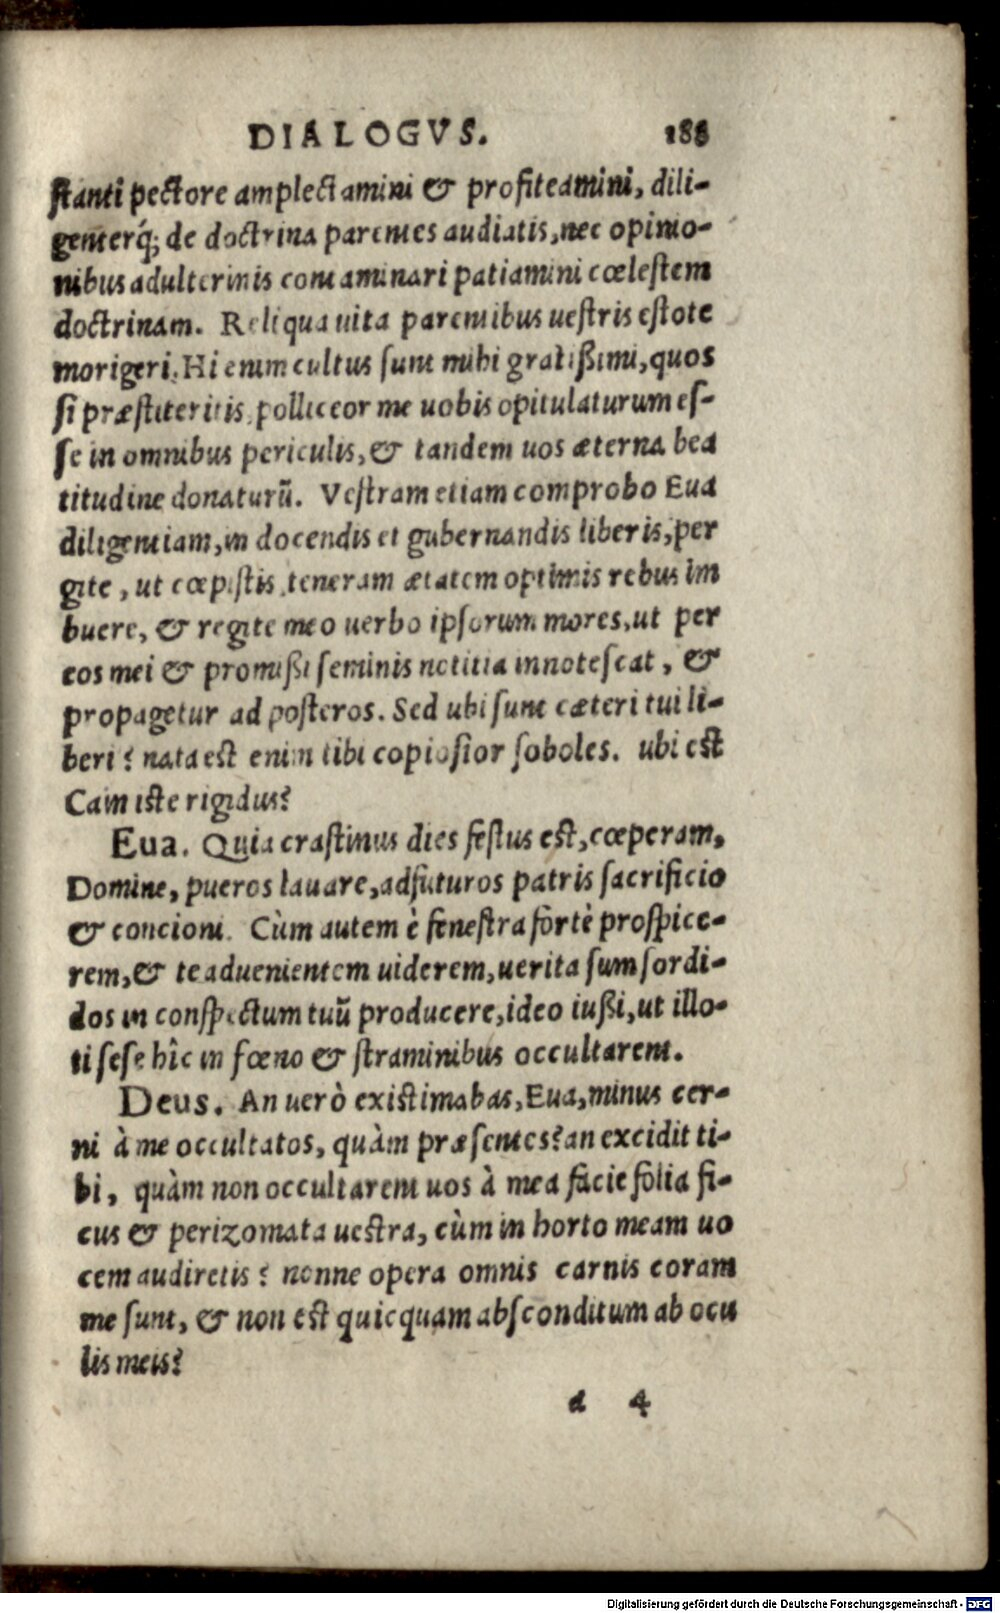 DIALOGVS. 188
stanti pectore amplectamini & profiteamini, dili-
genterq́; de doctrina parentes audiatis, nec opinio-
nibus adulterinis contaminari patiamini cœlestem
doctrinam. Reliqua uita parentibus uestris estote
morigeri. Hi enim cultus sunt mihi gratißimi, quos
si præstiteritis, polliceor me uobis opitulaturum es-
se in omnibus periculis, & tandem uos æterna bea
titudine donaturū. Vestram etiam comprobo Eua
diligentiam, in docendis et gubernandis liberis, per
gite, ut cœpistis, teneram ætatem optimis rebus im
buere, & regite meo uerbo ipsorum mores, ut per
eos mei & promißi seminis notitia innotescat, &
propagetur ad posteros. Sed ubi sunt cæteri tui li-
beri? nata est enim tibi copiosior soboles. ubi est
Cain iste rigidus?
Eua. Quia crastinus dies festus est, cœperam,
Domine, pueros lauare, adfuturos patris sacrificio
& concioni. Cùm autem è fenestra fortè prospice-
rem, & te aduenientem uiderem, uerita sum sordi-
dos in conspectum tuū producere, ideo iußi, ut illo-
ti sese hîc in fœno & straminibus occultarent.
Deus. An uerò existimabas, Eua, minus cer-
ni à me occultatos, quàm præsentes? an excidit ti-
bi, quàm non occultarent uos à mea facie folia fi-
cus & perizomata uestra, cùm in horto meam uo
cem audiretis? nonne opera omnis carnis coram
me sunt, & non est quicquam absconditum ab ocu
lis meis?
d 4
Digitalisierung gefördert durch die Deutsche Forschungsgemeinschaft - DFG